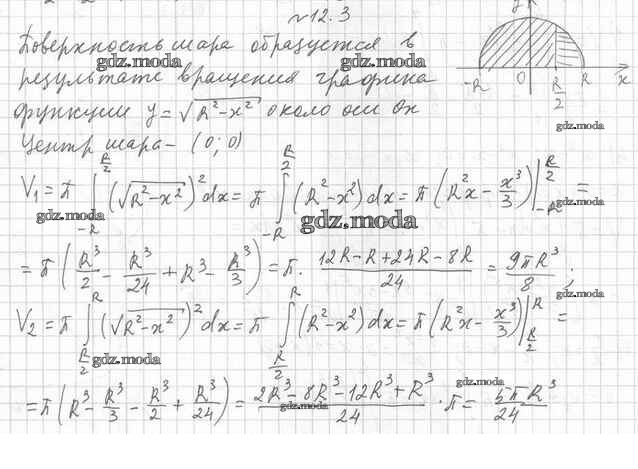 №12.3
Поверхность шара образуется в
результате вращения графика
функции y = √(R² - x²) около оси Ox
Центр шара - (0; 0)
y
-R 0 R/2 R x
V₁ = π ∫_{-R}^{R/2} (√(R² - x²))² dx = π ∫_{-R}^{R/2} (R² - x²) dx = π (R²x - x³/3) |_{-R}^{R/2} =
= π (R³/2 - R³/24 + R³ - R³/3) = π · (12R - R + 24R - 8R)/24 = 9πR³/8 ;
V₂ = π ∫_{R/2}^{R} (√(R² - x²))² dx = π ∫_{R/2}^{R} (R² - x²) dx = π (R²x - x³/3) |_{R/2}^{R} =
= π (R³ - R³/3 - R³/2 + R³/24) = (2R³ - 8R³ - 12R³ + R³)/24 · π = 5πR³/24
gdz.moda
gdz.moda
gdz.moda
gdz.moda
gdz.moda
gdz.moda
gdz.moda
gdz.moda
gdz.moda
gdz.moda
gdz.moda